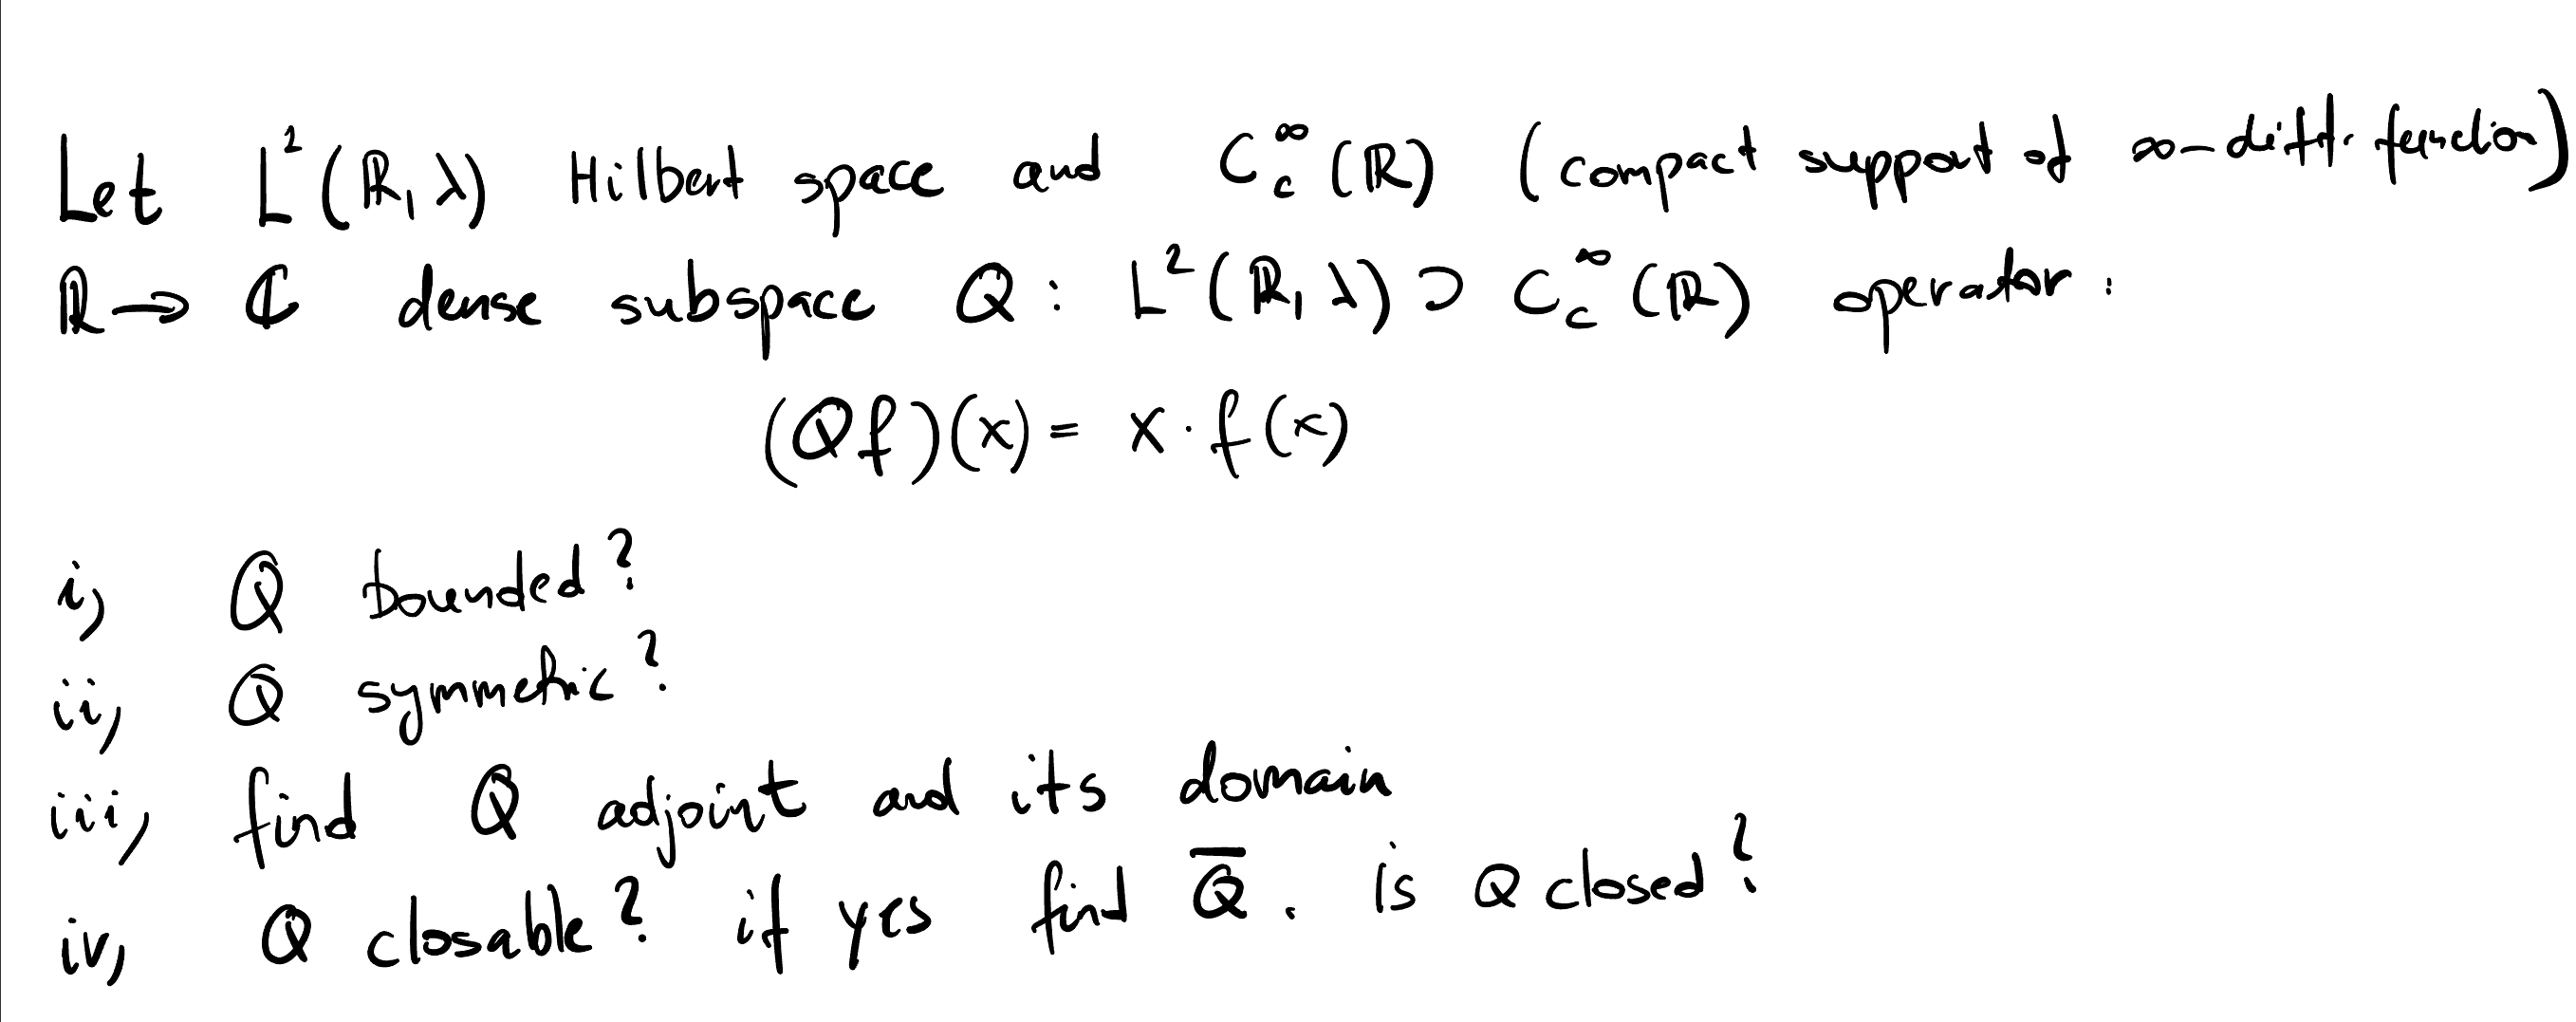 Let L²(ℝ, λ) Hilbert space and C_c^∞(ℝ) (compact support of ∞-diff. function)
ℝ → ℂ dense subspace Q : L²(ℝ, λ) ⊃ C_c^∞(ℝ) operator :
(Qf)(x) = x · f(x)
i, Q bounded?
ii, Q symmetric?
iii, find Q adjoint and its domain
iv, Q closable? if yes find Q̅. is Q closed?